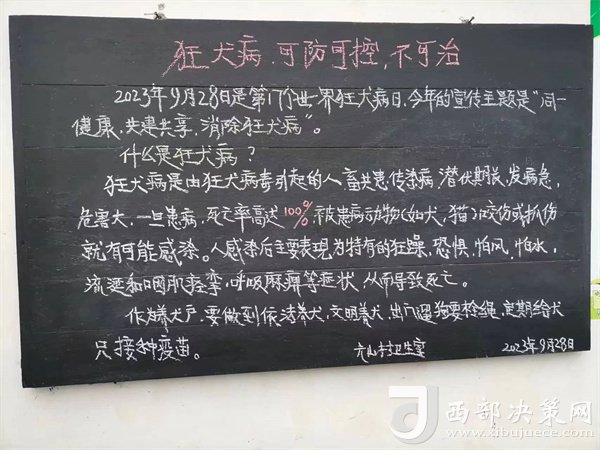 狂犬病.可防可控,不可治
2023年9月28日是第17个世界狂犬病日,今年的宣传主题是"同一
健康,共建共享,消除狂犬病"。
什么是狂犬病?
狂犬病是由狂犬病毒引起的人畜共患传染病,潜伏期长,发病急,
危害大,一旦患病,死亡率高达100%.被患病动物(如犬,猫)咬伤或抓伤
就有可能感染。人感染后主要表现为特有的狂躁,恐惧,怕风,怕水,
流涎和咽肌痉挛,呼吸麻痹等症状,从而导致死亡。
作为养犬户,要做到依法养犬,文明养犬,出门遛狗要拴绳,定期给犬
只接种疫苗。
村卫生室 2023年9月28日
西部决策网
www.xibujuece.com